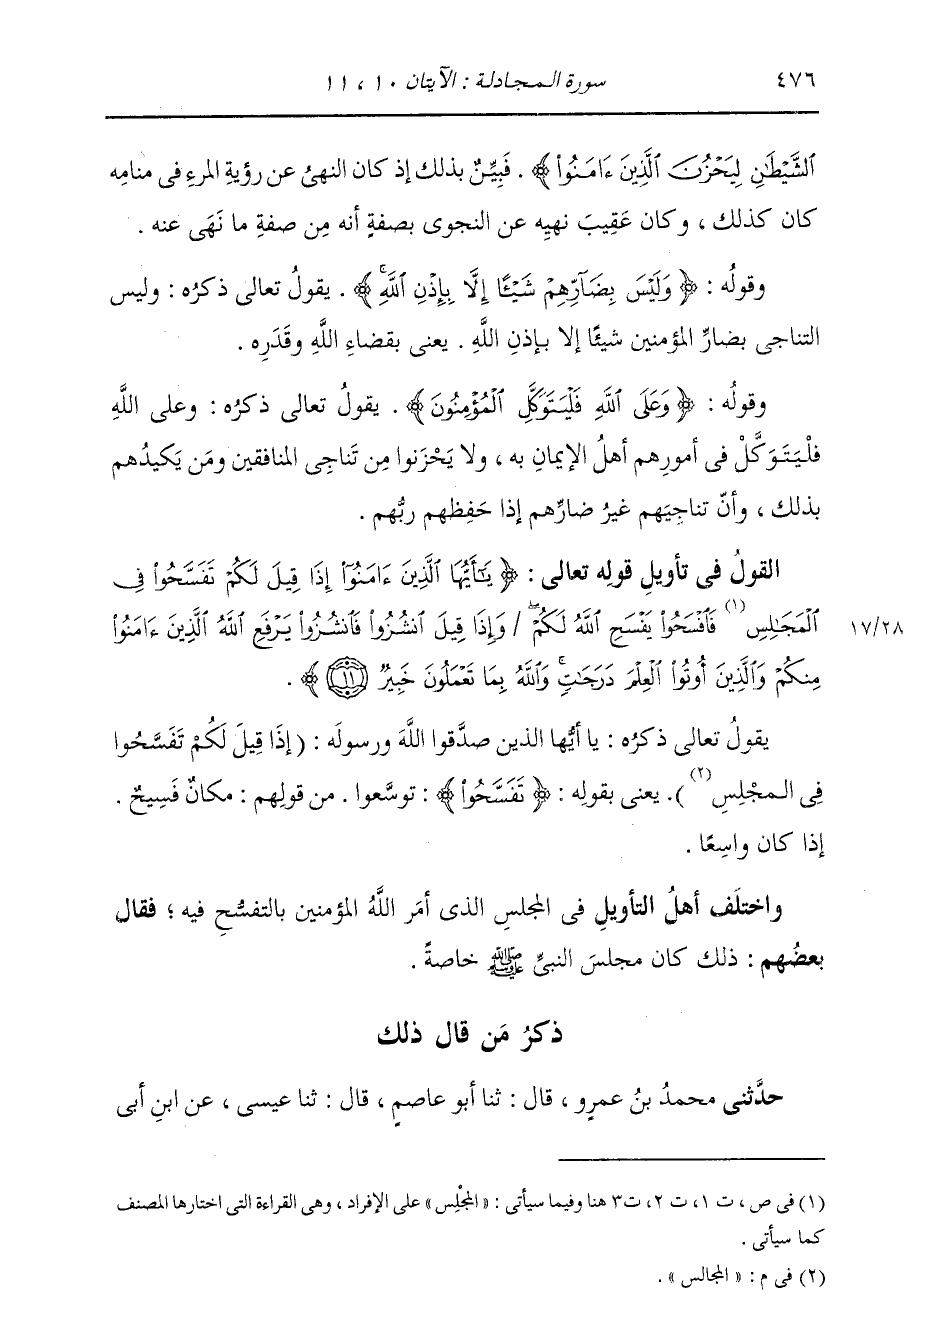 ٤٧٦ سورة المجادلة : الآيتان ١٠ ، ١١
ٱلشَّيْطَٰنِ لِيَحْزُنَ ٱلَّذِينَ ءَامَنُوا۟ ﴾ . فَبَيِّنٌ بذلك إذ كان النهىُ عن رؤيةِ المرءِ فى منامِه
كان كذلك ، وكان عَقِيبَ نهيِه عن النجوى بصفةٍ أنه مِن صفةِ ما نَهَى عنه .
وقولُه : ﴿ وَلَيْسَ بِضَآرِّهِمْ شَيْـًٔا إِلَّا بِإِذْنِ ٱللَّهِۚ ﴾ . يقولُ تعالى ذكرُه : وليس
التناجى بضارِّ المؤمنين شيئًا إلا بإذنِ اللَّهِ . يعنى بقضاءِ اللَّهِ وقَدَرِه .
وقولُه : ﴿ وَعَلَى ٱللَّهِ فَلْيَتَوَكَّلِ ٱلْمُؤْمِنُونَ ﴾ . يقولُ تعالى ذكرُه : وعلى اللَّهِ
فلْيَتَوكَّلْ فى أمورِهم أهلُ الإيمانِ به ، ولا يَحْزَنوا مِن تَناجِى المنافقين ومَن يَكيدُهم
بذلك ، وأنّ تناجِيَهم غيرُ ضارِّهم إذا حَفِظهم ربُّهم .
القولُ فى تأويلِ قولِه تعالى : ﴿ يَٰٓأَيُّهَا ٱلَّذِينَ ءَامَنُوٓا۟ إِذَا قِيلَ لَكُمْ تَفَسَّحُوا۟ فِى
ٱلْمَجَٰلِسِ (١) فَٱفْسَحُوا۟ يَفْسَحِ ٱللَّهُ لَكُمْۖ / وَإِذَا قِيلَ ٱنشُزُوا۟ فَٱنشُزُوا۟ يَرْفَعِ ٱللَّهُ ٱلَّذِينَ ءَامَنُوا۟
١٧/٢٨
مِنكُمْ وَٱلَّذِينَ أُوتُوا۟ ٱلْعِلْمَ دَرَجَٰتٍۚ وَٱللَّهُ بِمَا تَعْمَلُونَ خَبِيرٌ ١١ ﴾ .
يقولُ تعالى ذكرُه : يا أيُّها الذين صدَّقوا اللَّهَ ورسولَه : ( إِذَا قِيلَ لَكُمْ تَفَسَّحُوا
فِى المجْلِسِ (٢) ). يعنى بقولِه : ﴿ تَفَسَّحُوا۟ ﴾ : توسَّعوا . من قولِهم : مكانٌ فَسِيحٌ .
إذا كان واسِعًا .
واختلَف أهلُ التأويلِ فى المجلسِ الذى أمَر اللَّهُ المؤمنين بالتفسُّحِ فيه ؛ فقال
بعضُهم : ذلك كان مجلسَ النبىِّ ﷺ خاصةً .
ذكرُ مَن قال ذلك
حدَّثنى محمدُ بنُ عمرٍو ، قال : ثنا أبو عاصمٍ ، قال : ثنا عيسى ، عن ابنِ أبى
(١) فى ص ، ت ١، ت ٢، ت٣ هنا وفيما سيأتى : « المجْلِس » على الإفراد ، وهى القراءة التى اختارها المصنف
كما سيأتى .
(٢) فى م : « المجالس » .